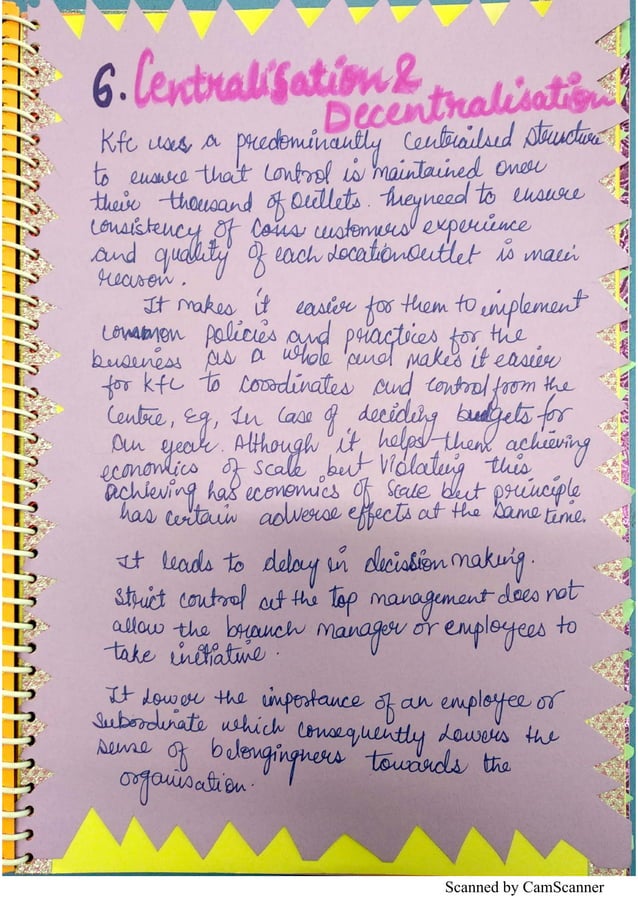 6. Centralisation &
Decentralisation
Kfc uses a predominantly Centrailsed Structure
to ensure that control is maintained over
their thousand of outlets. Theyneed to ensure
consistency of Cons customers experience
and quality of each LocationOutlet is main
reason.
It makes it easier for them to implement
common policies and practices for the
buseness as a whole and makes it easier
for kfc to coordinates and control from the
Centre, Eg, In case of deciding budgets for
an year. Although it helps them achieving
economics of scale but Violating this
achieving has economics of scale but principle
has certain adverse effects at the same time.
It leads to delay in decission making.
Strict control at the top management does not
allow the branch manager or employees to
take initiative.
It Lower the importance of an employee or
Subordinate which consequently Lowers the
sense of belongingners towards the
organisation.
Scanned by CamScanner